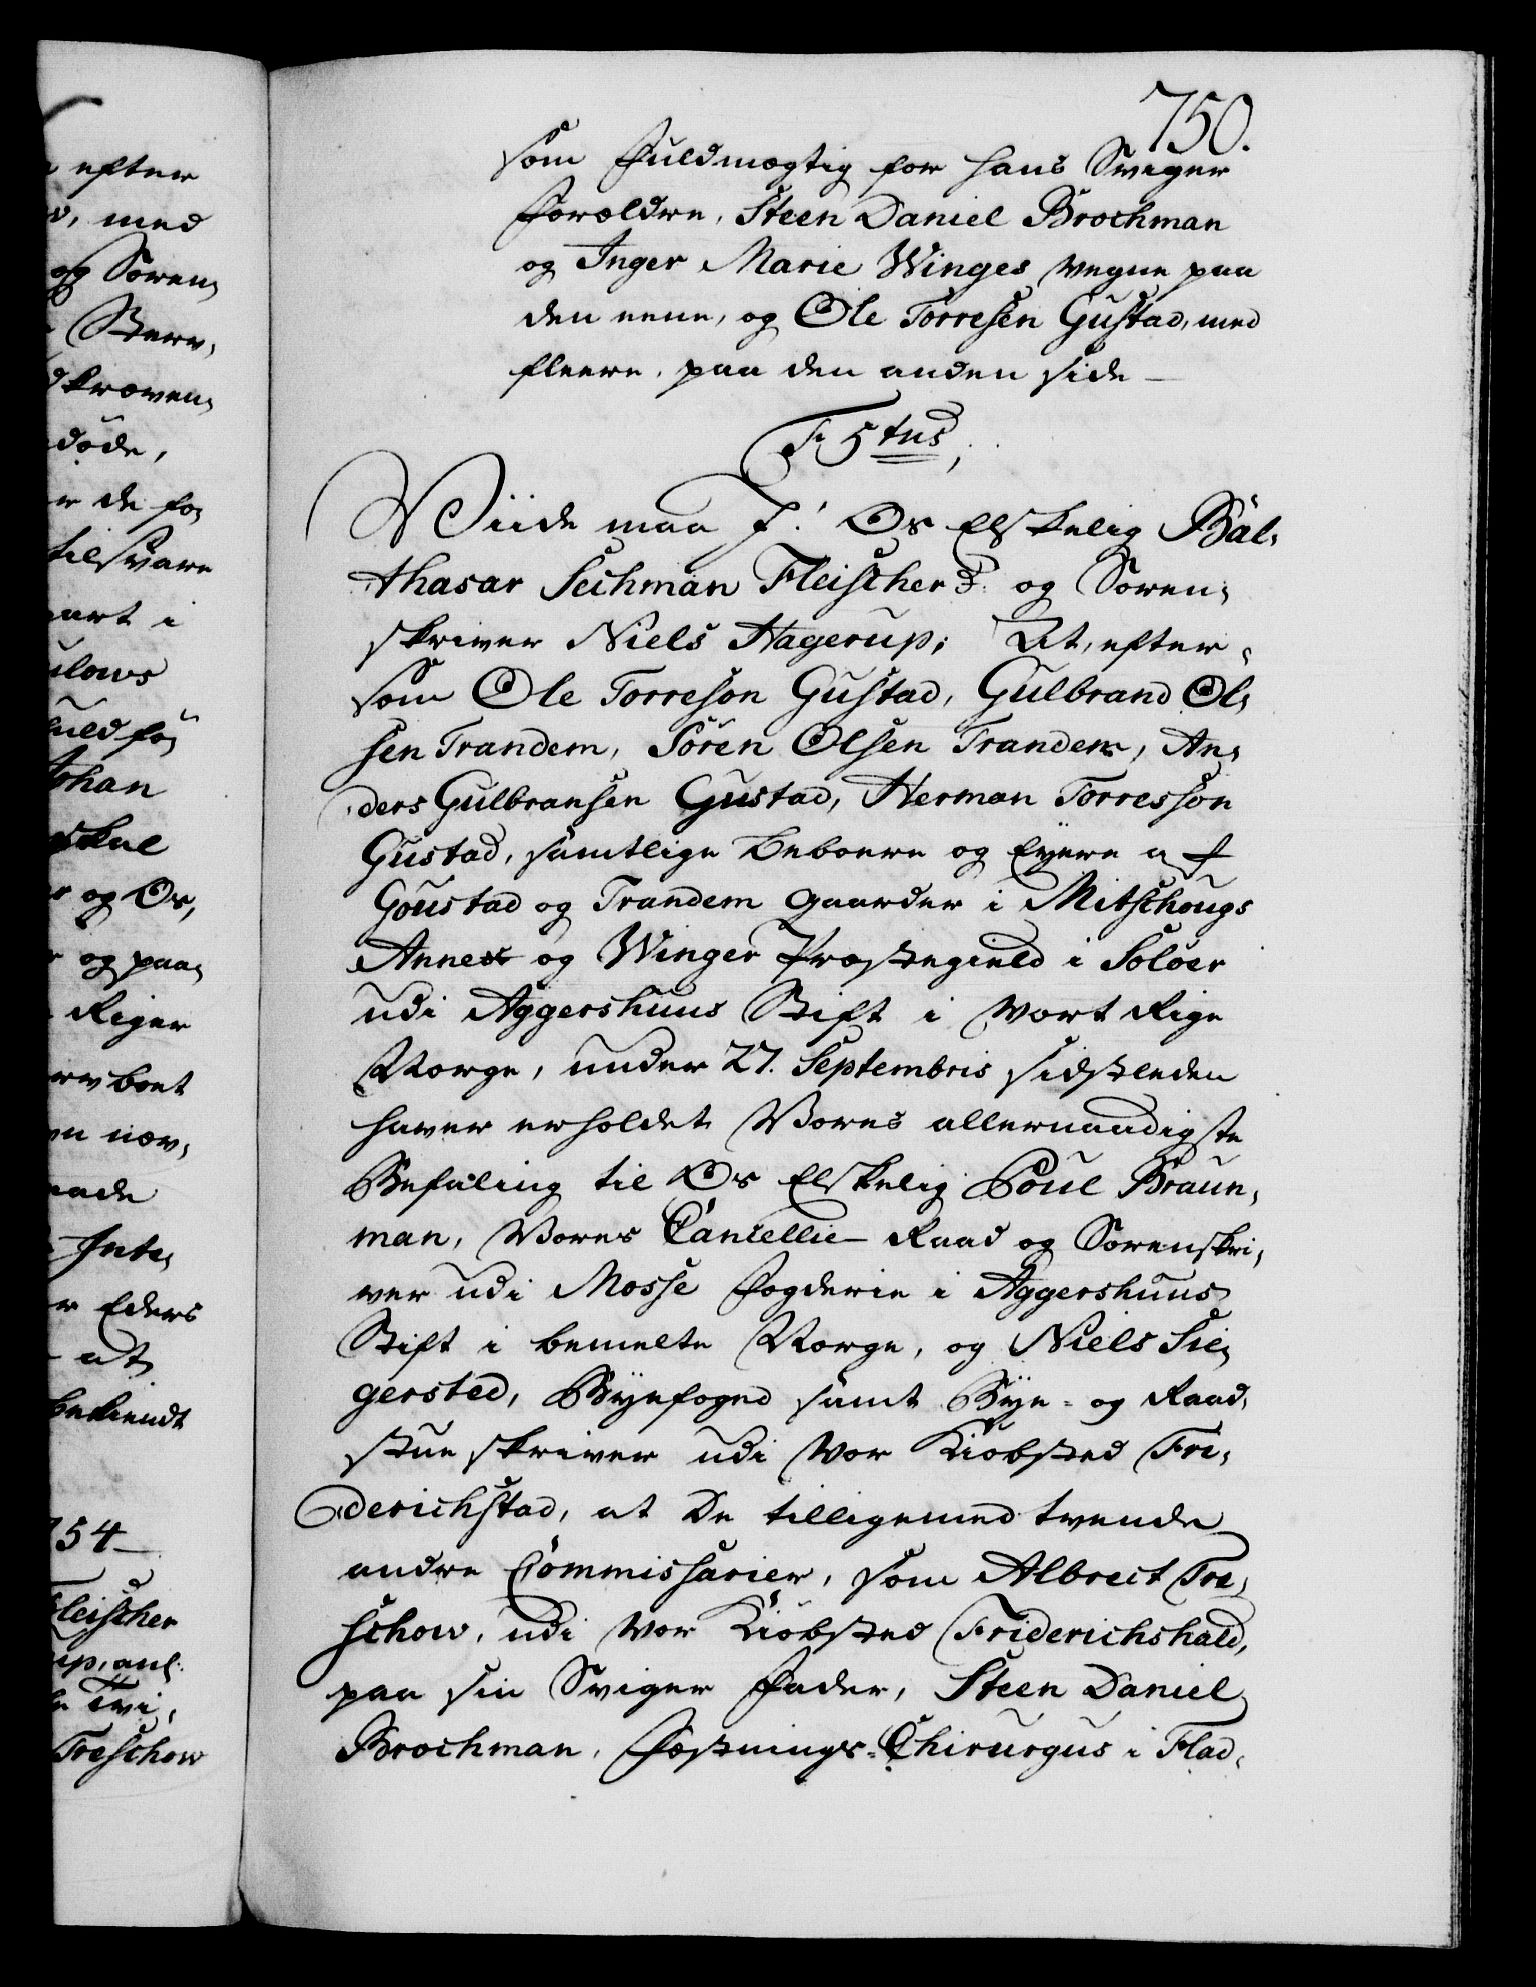 750.
som Fuldmægtig for hans Sviger
Forældre, Steen Daniel Brochman
og Inger Marie Winges vegne paa
den eene, og Ole Torresen Gustad, med
fleere, paa den anden side —
F 5tus,
Viide maa I! Os Elskelig Bal-
thasar Sechman Fleischer og Soren-
skriver Niels Hagerup; At, efter-
som Ole Torreson Gustad, Gulbrand Ol-
sen Trandem, Sören Olsen Trandem, An-
ders Gulbransen Gustad, Herman Torresson
Gustad, samtlige Beboere og Eyere af
Goustad og Trandem Gaarder i Mitschougs
Annex og Winger Præstegield i Soloer
udi Aggershuus Stift i Vort Rige
Norge, under 27. Septembris sidstleden
haver erholdet Vores allernaadigste
Befaling til Os Elskelig Poul Braun-
man, Vores Cancellie-Raad og Sorenskri-
ver udi Mosse Fogderie i Aggershuus
Stift i bemelte Norge, og Niels Sie-
gersted, Byefoged samt Bye- og Raad-
stueskriver udi Vor Kiøbsted Fri-
derichstad, at De tilligemed tvende
andre Commissarier, som Albrect Tre-
schow, udi Vor Kiøbsted Friderichshald,
paa sin Sviger Fader, Steen Daniel
Brochman, Fæstnings-Chirurgus i Flad-
efter
med
og Soren-
døde,
de fo-
tilsvare
og Os,
og paa-
Riger
Eders
at
bekiendt
54 —
Fleischer
Treschow